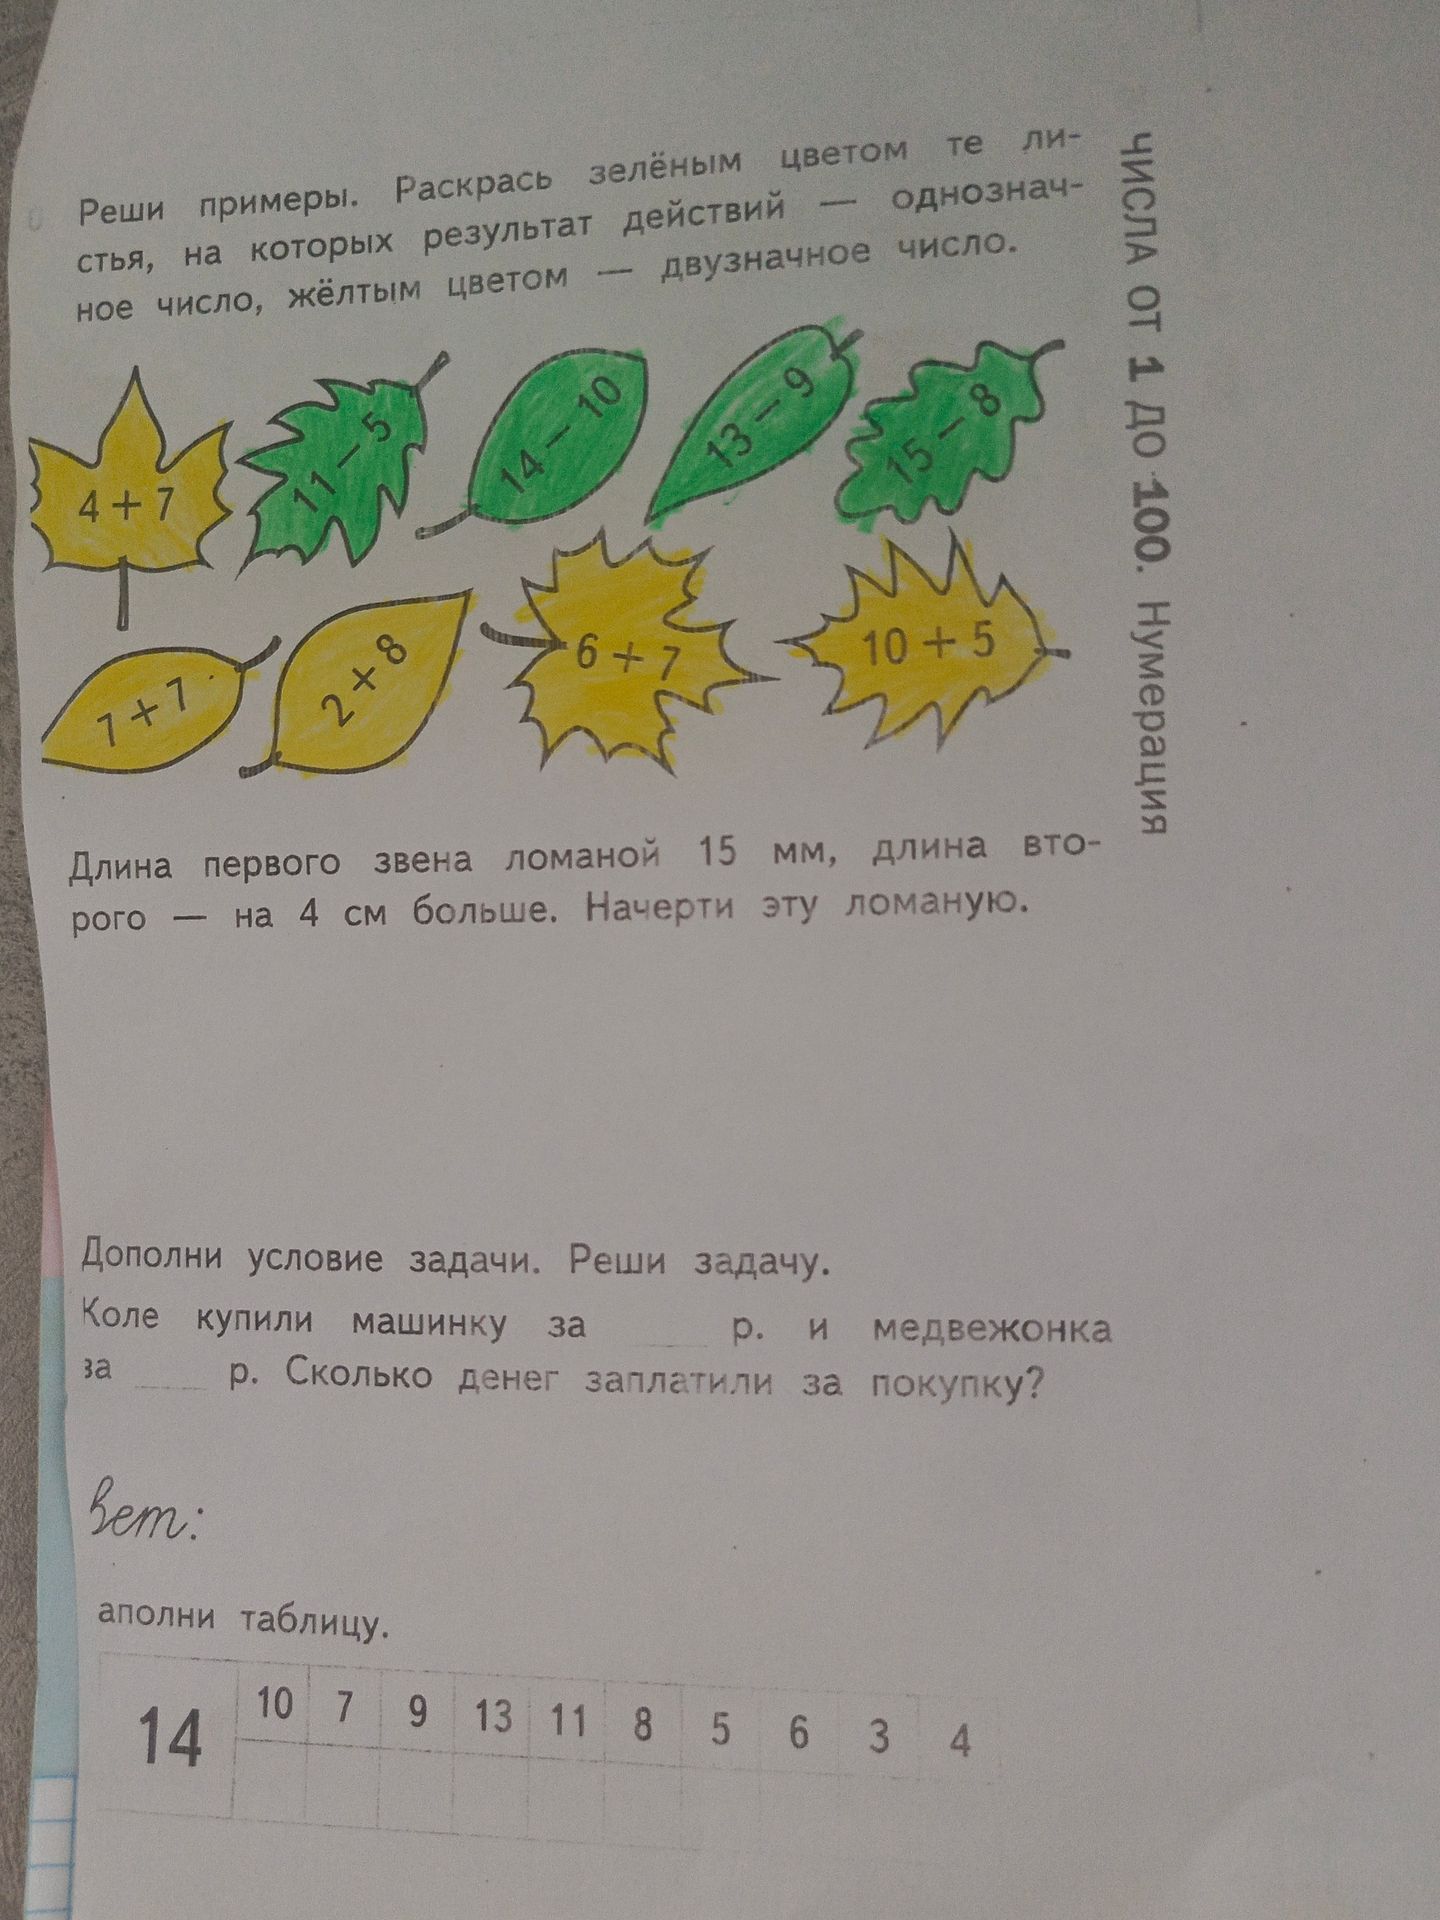 Реши примеры. Раскрась зелёным цветом те ли-
стья, на которых результат действий — однознач-
ное число, жёлтым цветом — двузначное число.
4 + 7
11 – 5
14 – 10
13 – 9
15 – 8
7 + 7
2 + 8
6 + 7
10 + 5
Длина первого звена ломаной 15 мм, длина вто-
рого — на 4 см больше. Начерти эту ломаную.
Дополни условие задачи. Реши задачу.
Коле купили машинку за ____ р. и медвежонка
за ____ р. Сколько денег заплатили за покупку?
вет:
аполни таблицу.
14 10 7 9 13 11 8 5 6 3 4
ЧИСЛА ОТ 1 ДО 100. Нумерация